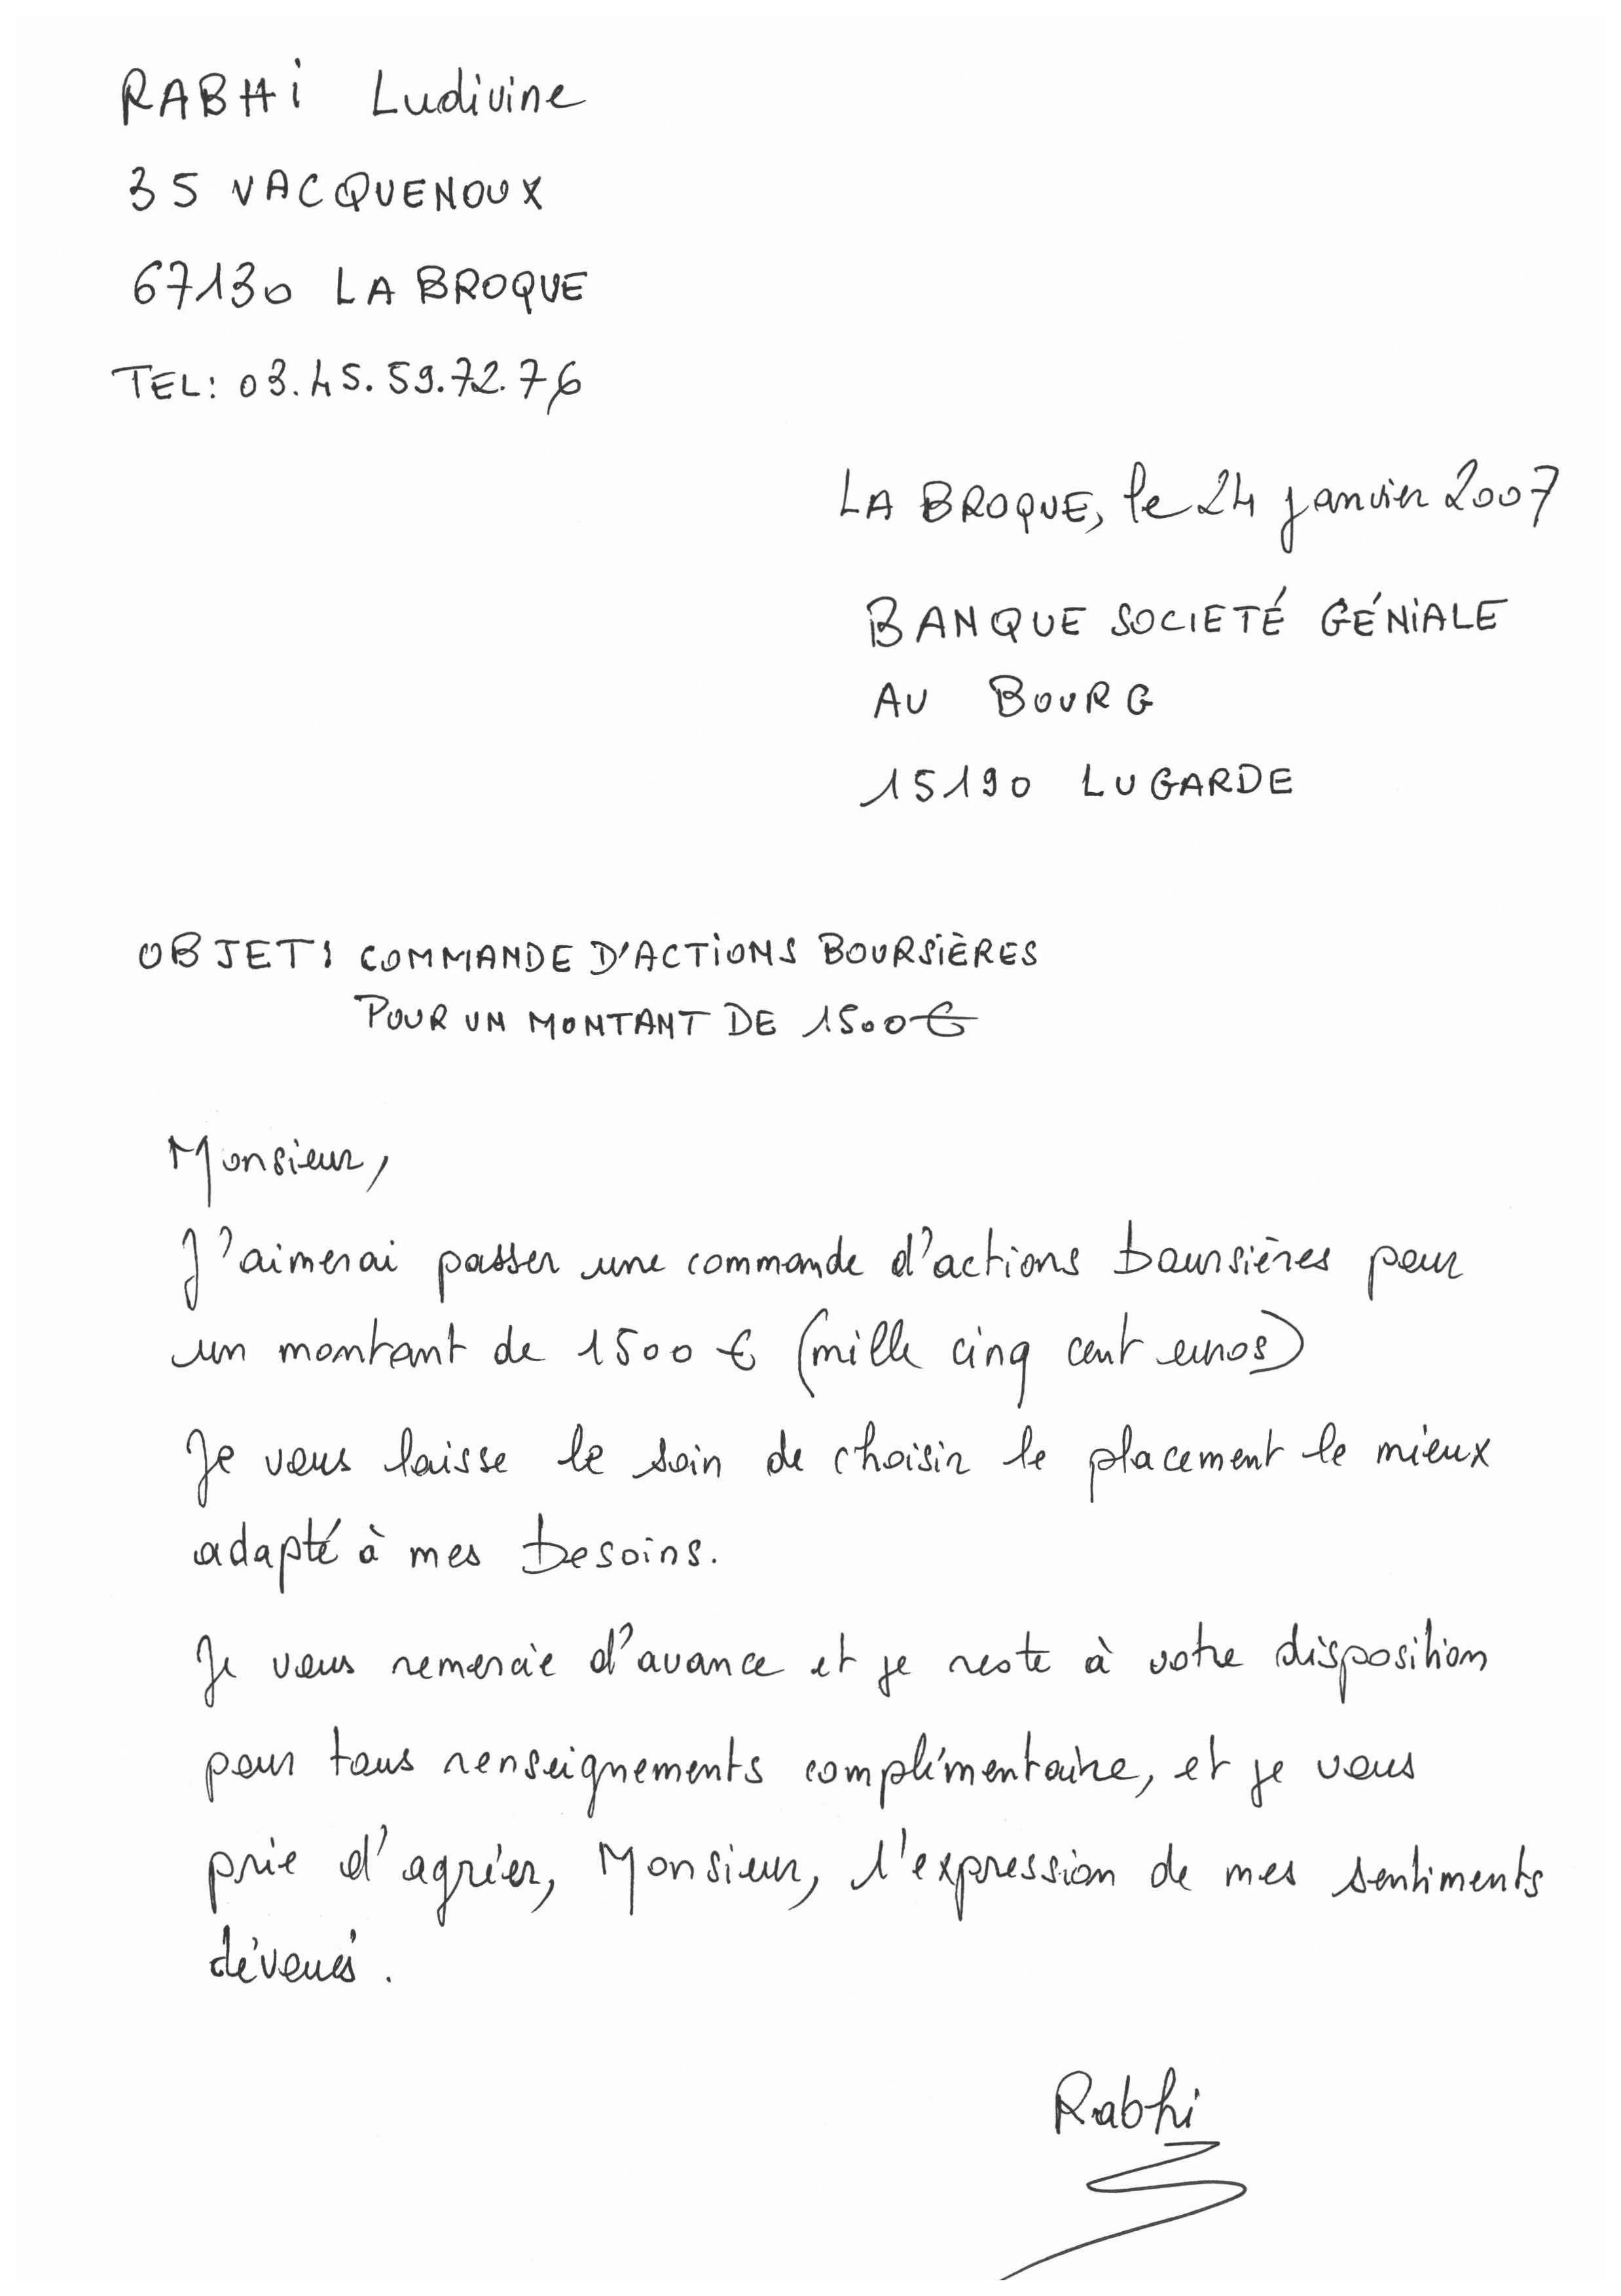 RABHi Ludivine
35 VACQUENOUX
67130 LA BROQUE
TEL: 03.45.59.72.76
LA BROQUE, le 24 janvier 2007
BANQUE SOCIETÉ GÉNiALE
AU BOURG
15190 LUGARDE
OBJET: COMMANDE D'ACTiONS BOURSiÈRES
POUR UN MONTANT DE 1500€
Monsieur,
J'aimerai passer une commande d'actions boursières pour
un montant de 1500 € (mille cinq cent euros)
Je vous laisse le soin de choisir le placement le mieux
adapté à mes besoins.
Je vous remercie d'avance et je reste à votre disposition
pour tous renseignements complémentaire, et je vous
prie d'agréer, Monsieur, l'expression de mes sentiments
dévoués.
Rabhi